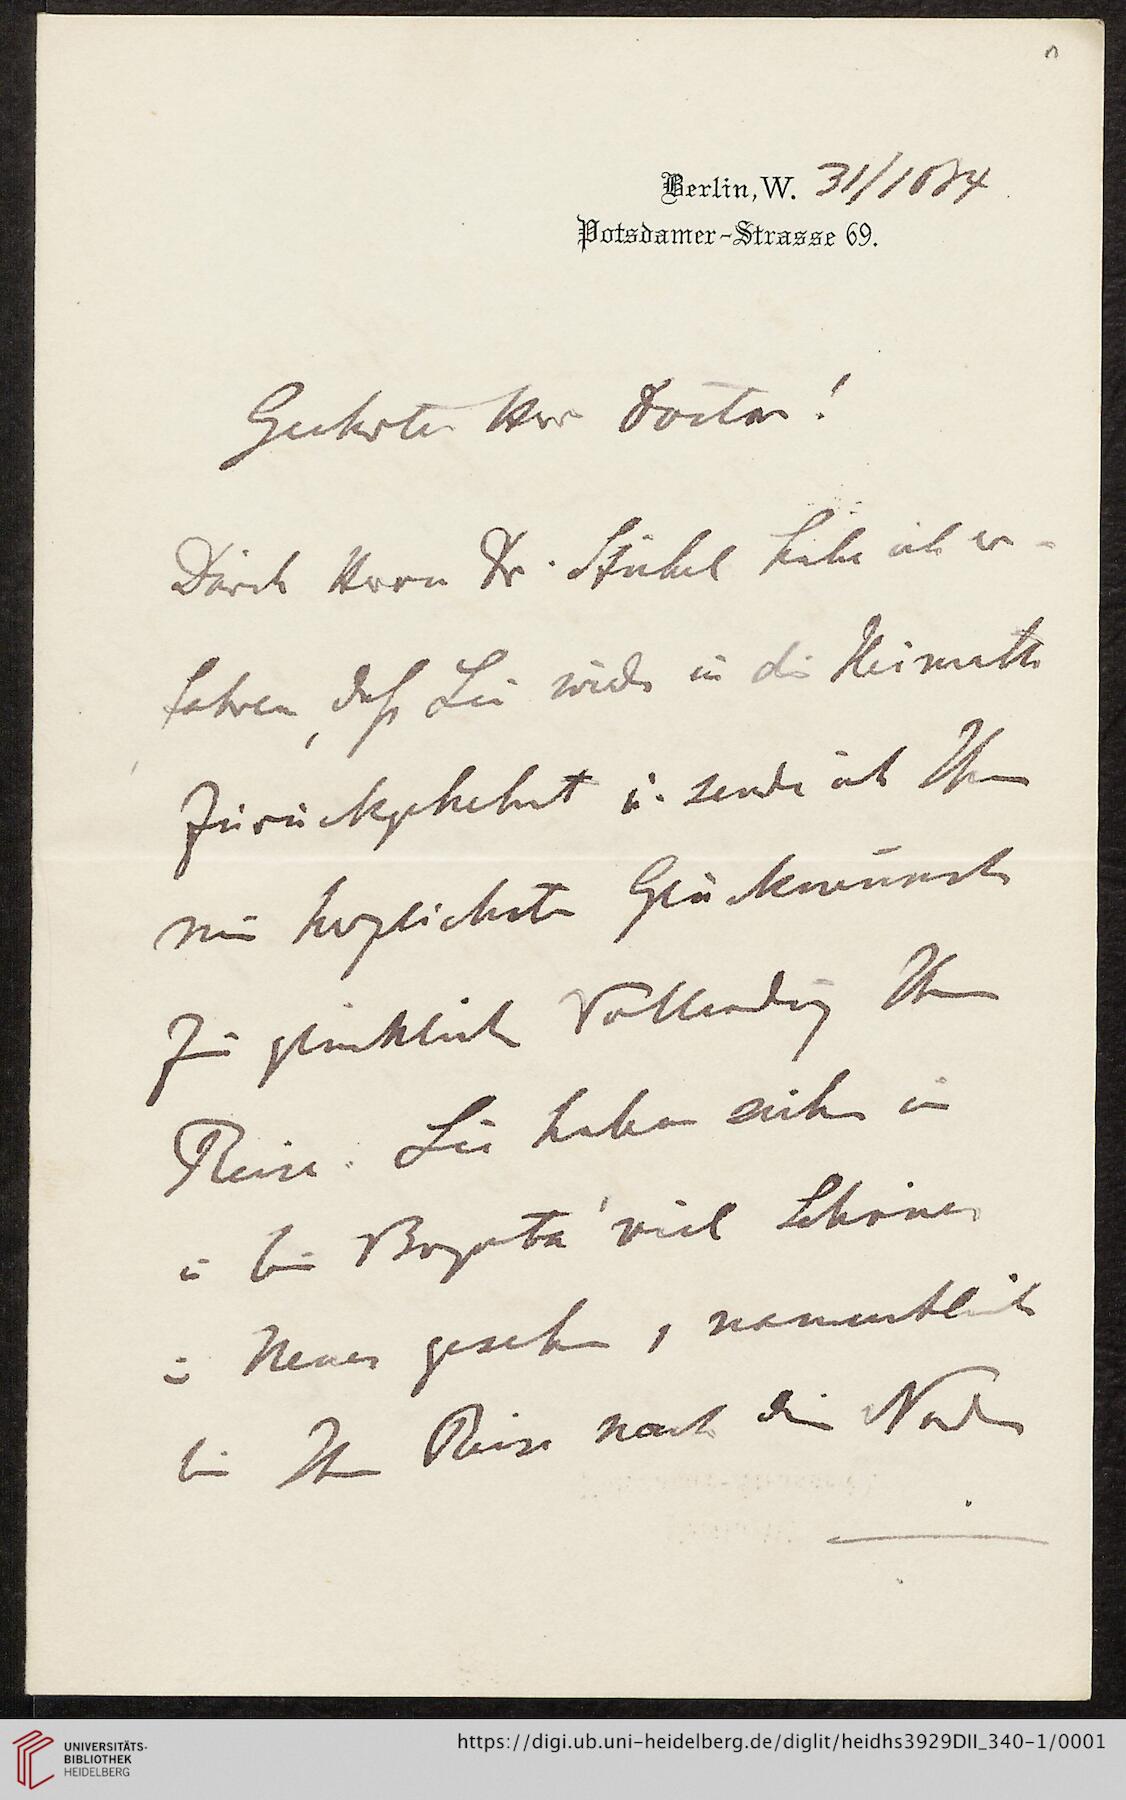 Berlin, W. 31/10 84
Potsdamer-Strasse 69.
Geehrter Herr Doctor!
Durch Herrn Dr. Stübel habe ich er-
fahren, daß Sie wieder in die Heimath
zurückgekehrt u. sende ich Ihnen
meine herzlichsten Glückwünsche
zur glücklichen Vollendung Ihrer
Reise. Sie haben sicher in
u bei Bogotá viel Schönes
u Neues gesehen, namentlich
bei Ihrer Reise nach dem Norden
UNIVERSITÄTS-
BIBLIOTHEK
HEIDELBERG
https://digi.ub.uni-heidelberg.de/diglit/heidhs3929DII_340-1/0001